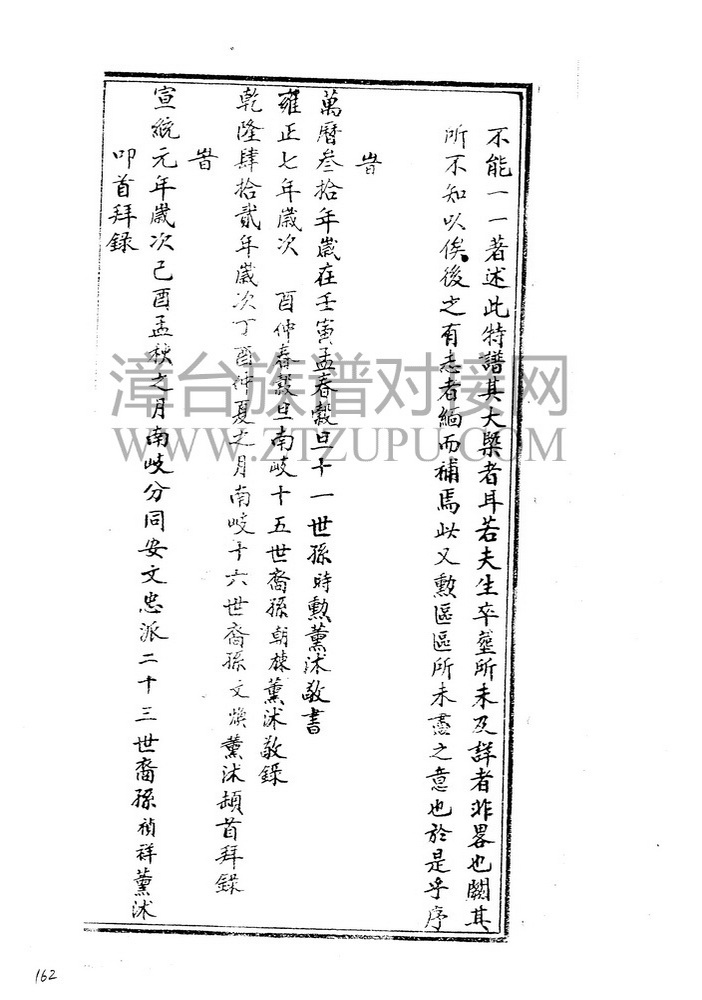 不能一一著述此特譜其大槩者耳若夫生卒塋所未及詳者非畧也闕其
所不知以俟後之有志者緬而補焉此又勲區區所未盡之意也於是乎序
旹
萬曆叁拾年歲在壬寅孟春穀旦十一世孫時勲薰沐敬書
雍正七年歲次 酉仲春穀旦南岐十五世裔孫朝棟薰沐敬錄
乾隆肆拾貳年歲次丁酉仲夏之月南岐十六世裔孫文煥薰沐頓首拜錄
旹
宣統元年歲次己酉孟秋之月南岐分同安文忠派二十三世裔孫禎祥薰沐
叩首拜錄
漳台族谱对接网
WWW.ZTZUPU.COM
162